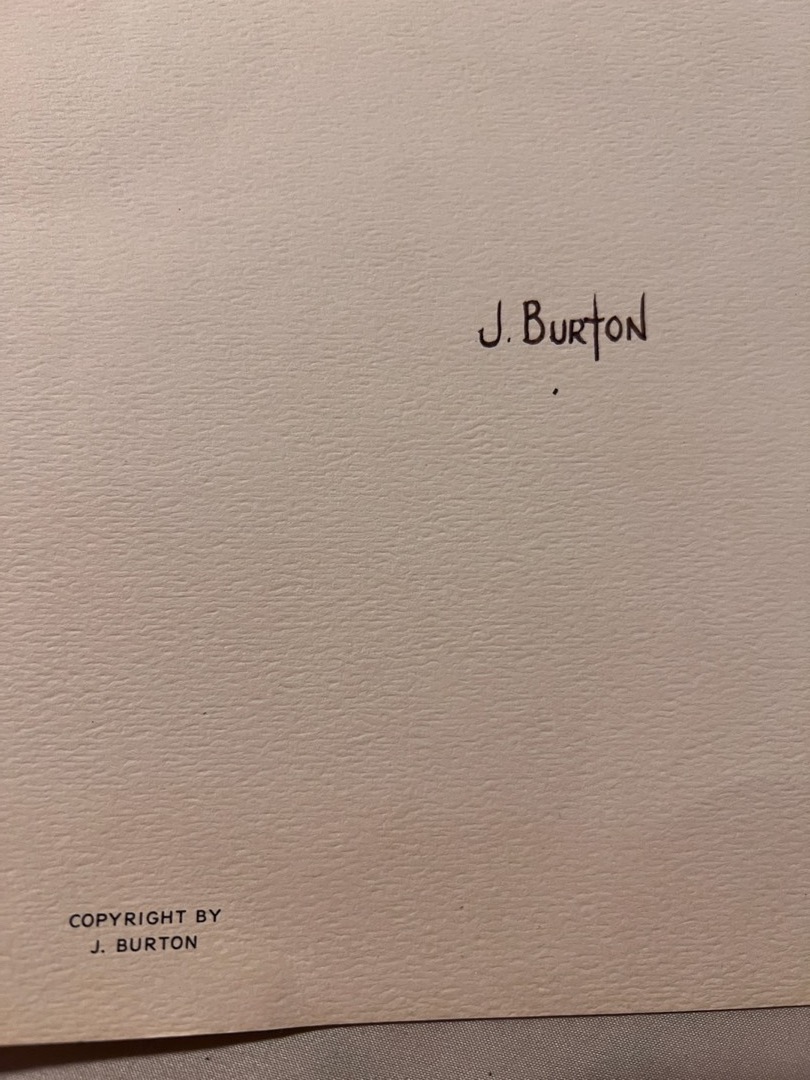 J. BURTON
COPYRIGHT BY
J. BURTON